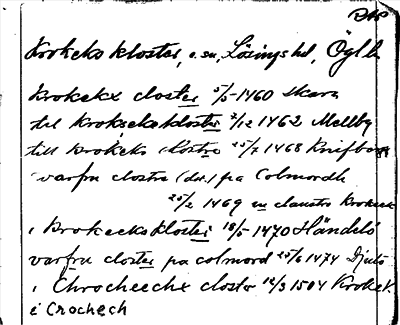 Krokeks kloster, o. sn, Lösings hd, Ög l.
Krokekx closter 5/5 1460 Skara
til Krokseke kloster 7/12 1462 Mellby
till Krokeks Klostre 25/7 1468 Knifb
varfru clostre (ds.) pa Colmordh
25/2 1469 claustro Krokek
i Krokecks Kloster 18/5 1470 Händelö
varfru closter pa colmord 25/6 1474
i Chrocheechx closter 12/3 1504 Krokek
i Crochech